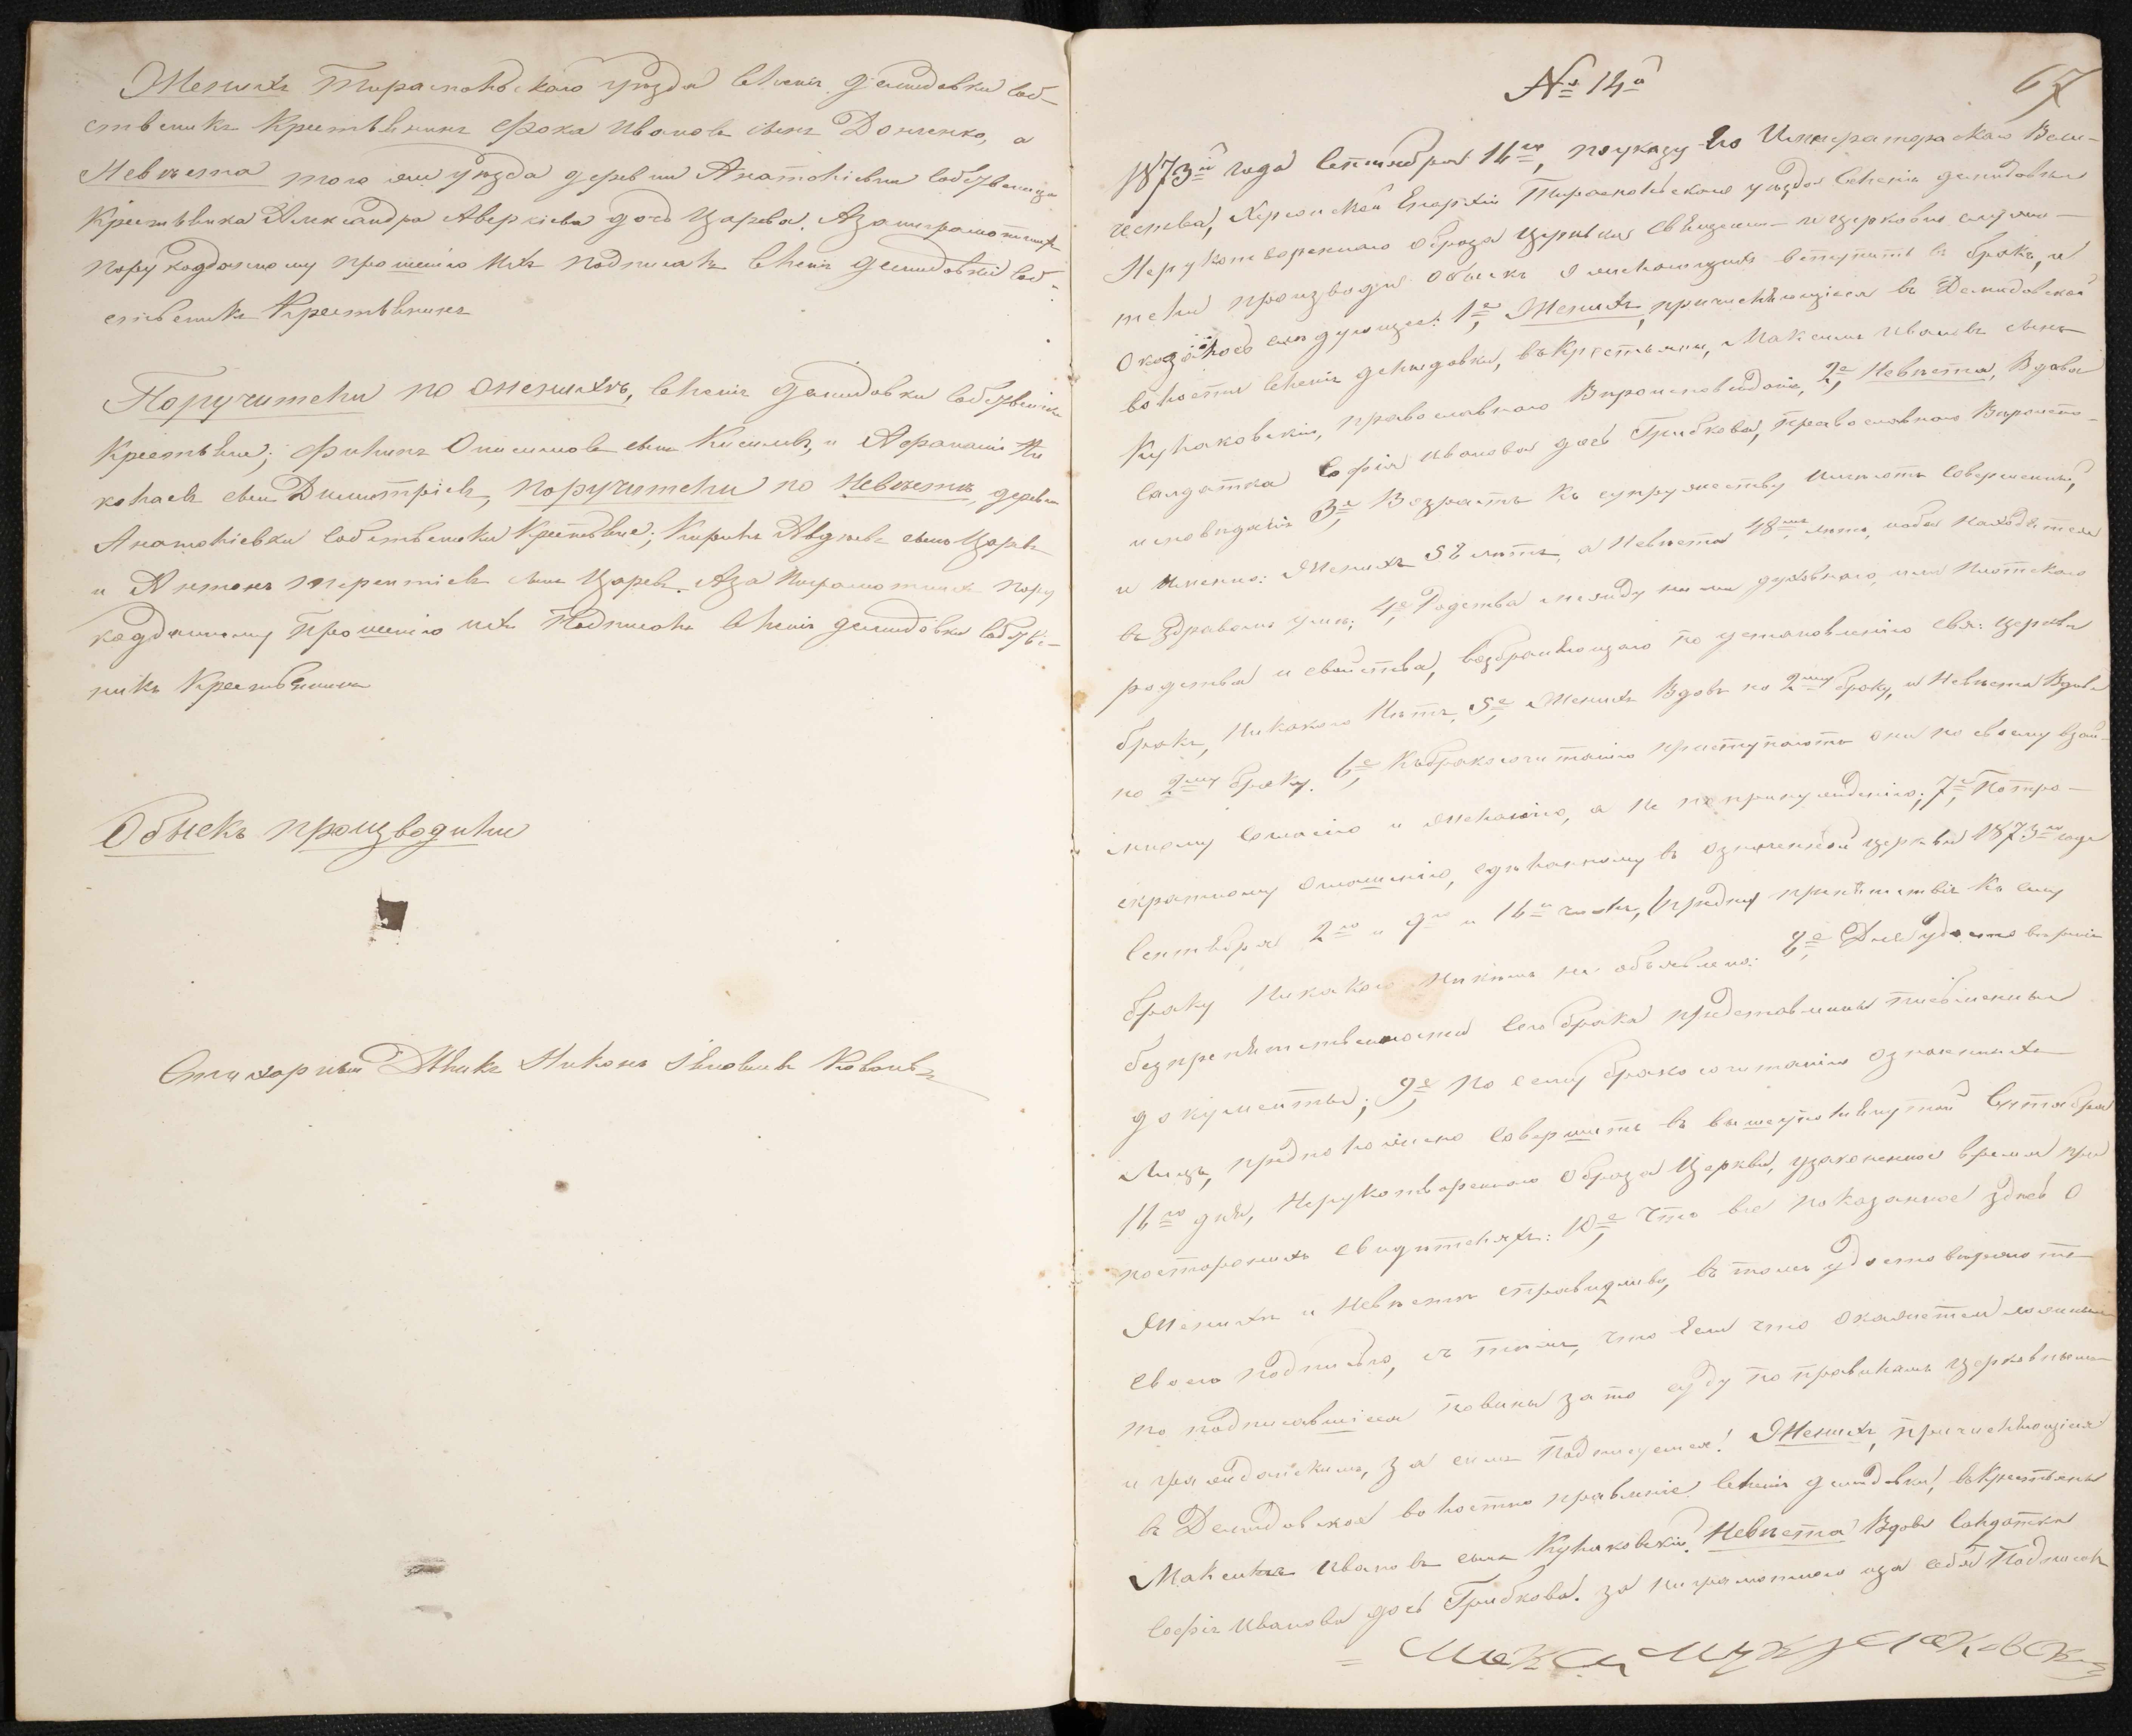 Женихъ Тираспольскаго уѣзда Селенія Демидовки соб-
ственикъ Крестьянинъ Фока Ивановъ сынъ Донченко, а
Невѣста того же уѣзда деревни Анатоліевки собственица
Крестьянка Александра Аверкіева дочь Царева. Азанеграмотныхъ
порукоданному прошенію ихъ подписалъ Селенія Демидовки соб-
ственикъ Крестьянинъ
Поручители по Женихѣ, Селенія Демидовки собственики
Крестьяне; Филипъ Онисимовъ сынъ Киселивъ, и Афанасій Ни
колаевъ сынъ Димитріевъ, поручители по Невѣстѣ, деревни
Анатоліевки собственики Крестьяне; Кирилъ Авдѣевъ сынъ Царевъ
и Антонъ Терентіевъ сынъ Царевъ. Аза Неграмотныхъ пору
коданному прошенію ихъ Подписалъ Селенія Демидовки собстве-
никъ Крестьянинъ
Обыскъ производили
Стихарный Дьякъ Никонъ Яковлевъ Коваль
67
№ 14й
1873й года Сентября 16го, поуказу Его Императорскаго Вели-
чества, Херсонской Епархіи Тираспольскаго уѣзда Селенія Демидовки
Нерукотвореннаго Образа Церквы Священно-и церковно служи-
тели производили обыскъ о желающихъ вступить въ бракъ, и
оказалось слѣдующее: 1е, Женихъ, причисляющійся въ Демидовской
волости Селенія Демидовки, въКрестьяны, Максимъ Ивановъ сынъ
Кулаковскій, православнаго Вѣроисповѣданія, 2е, Невѣста, Вдова
Салдатка Софія Иванова дочь Грибкова, православнаго Вѣроиспо-
исповѣданія 3е, Возрастъ къ супружеству имѣютъ совершенный,
и Именно: Женихъ 52 лѣтъ, а Невѣста 48мь лѣтъ, иоба находятся
въ здравомъ умѣ; 4е, Родства между ними духовнаго, или плотскаго
родства и свойства, возбраняющаго по установленію свя: церкви
бракъ, Никакого Нѣтъ, 5е Женихъ Вдовъ по 2му браку, и Невѣста Вдова
по 2му браку. 6е, Къбракосочитанію приступаютъ они по своему взаи-
мному Согласію и Желанію, а не попринужденію; 7е, Потро-
екратному Оглашенію, сдѣланному въ означенной церкви 1873го года
Сентября 2го и 9го и 16й числѣ, предмѣт препятствія къ сему
браку Никакого Никемъ не объявлено: 8е, Для удостовѣренія
безпрепятственности Сего брака представлены письменныя
документы; 9е, по сему бракосочитанію означенныхъ
Лицъ, предположено совершить въ вышеупомянутой Сентября
16го дня, Нерукотвореннаго Образа Церквы, узаконенное время при
постороннихъ свидѣтеляхъ: 10е, Что всё показанное здѣсь о
Женихѣ и Невѣстѣ справедливо, въ томъ удостовѣряютъ
своею подписью, съ тѣмъ, что Если что окажется ложнымъ
то подписавшіеся повины зато суду по правиламъ церковнымъ
и гражданскимъ, за симъ Подписуемся! Женихъ, причисляющійся
въ Демидовское волостно правленіе Селенія Демидовки, въКрестьяны
Максимъ Ивановъ сынъ Кулаковскій, Невѣста Вдова Салдатка
Софія Иванова дочь Грибкова. за неграмотного иза себя Подписалъ
Максимъ Кулаковски